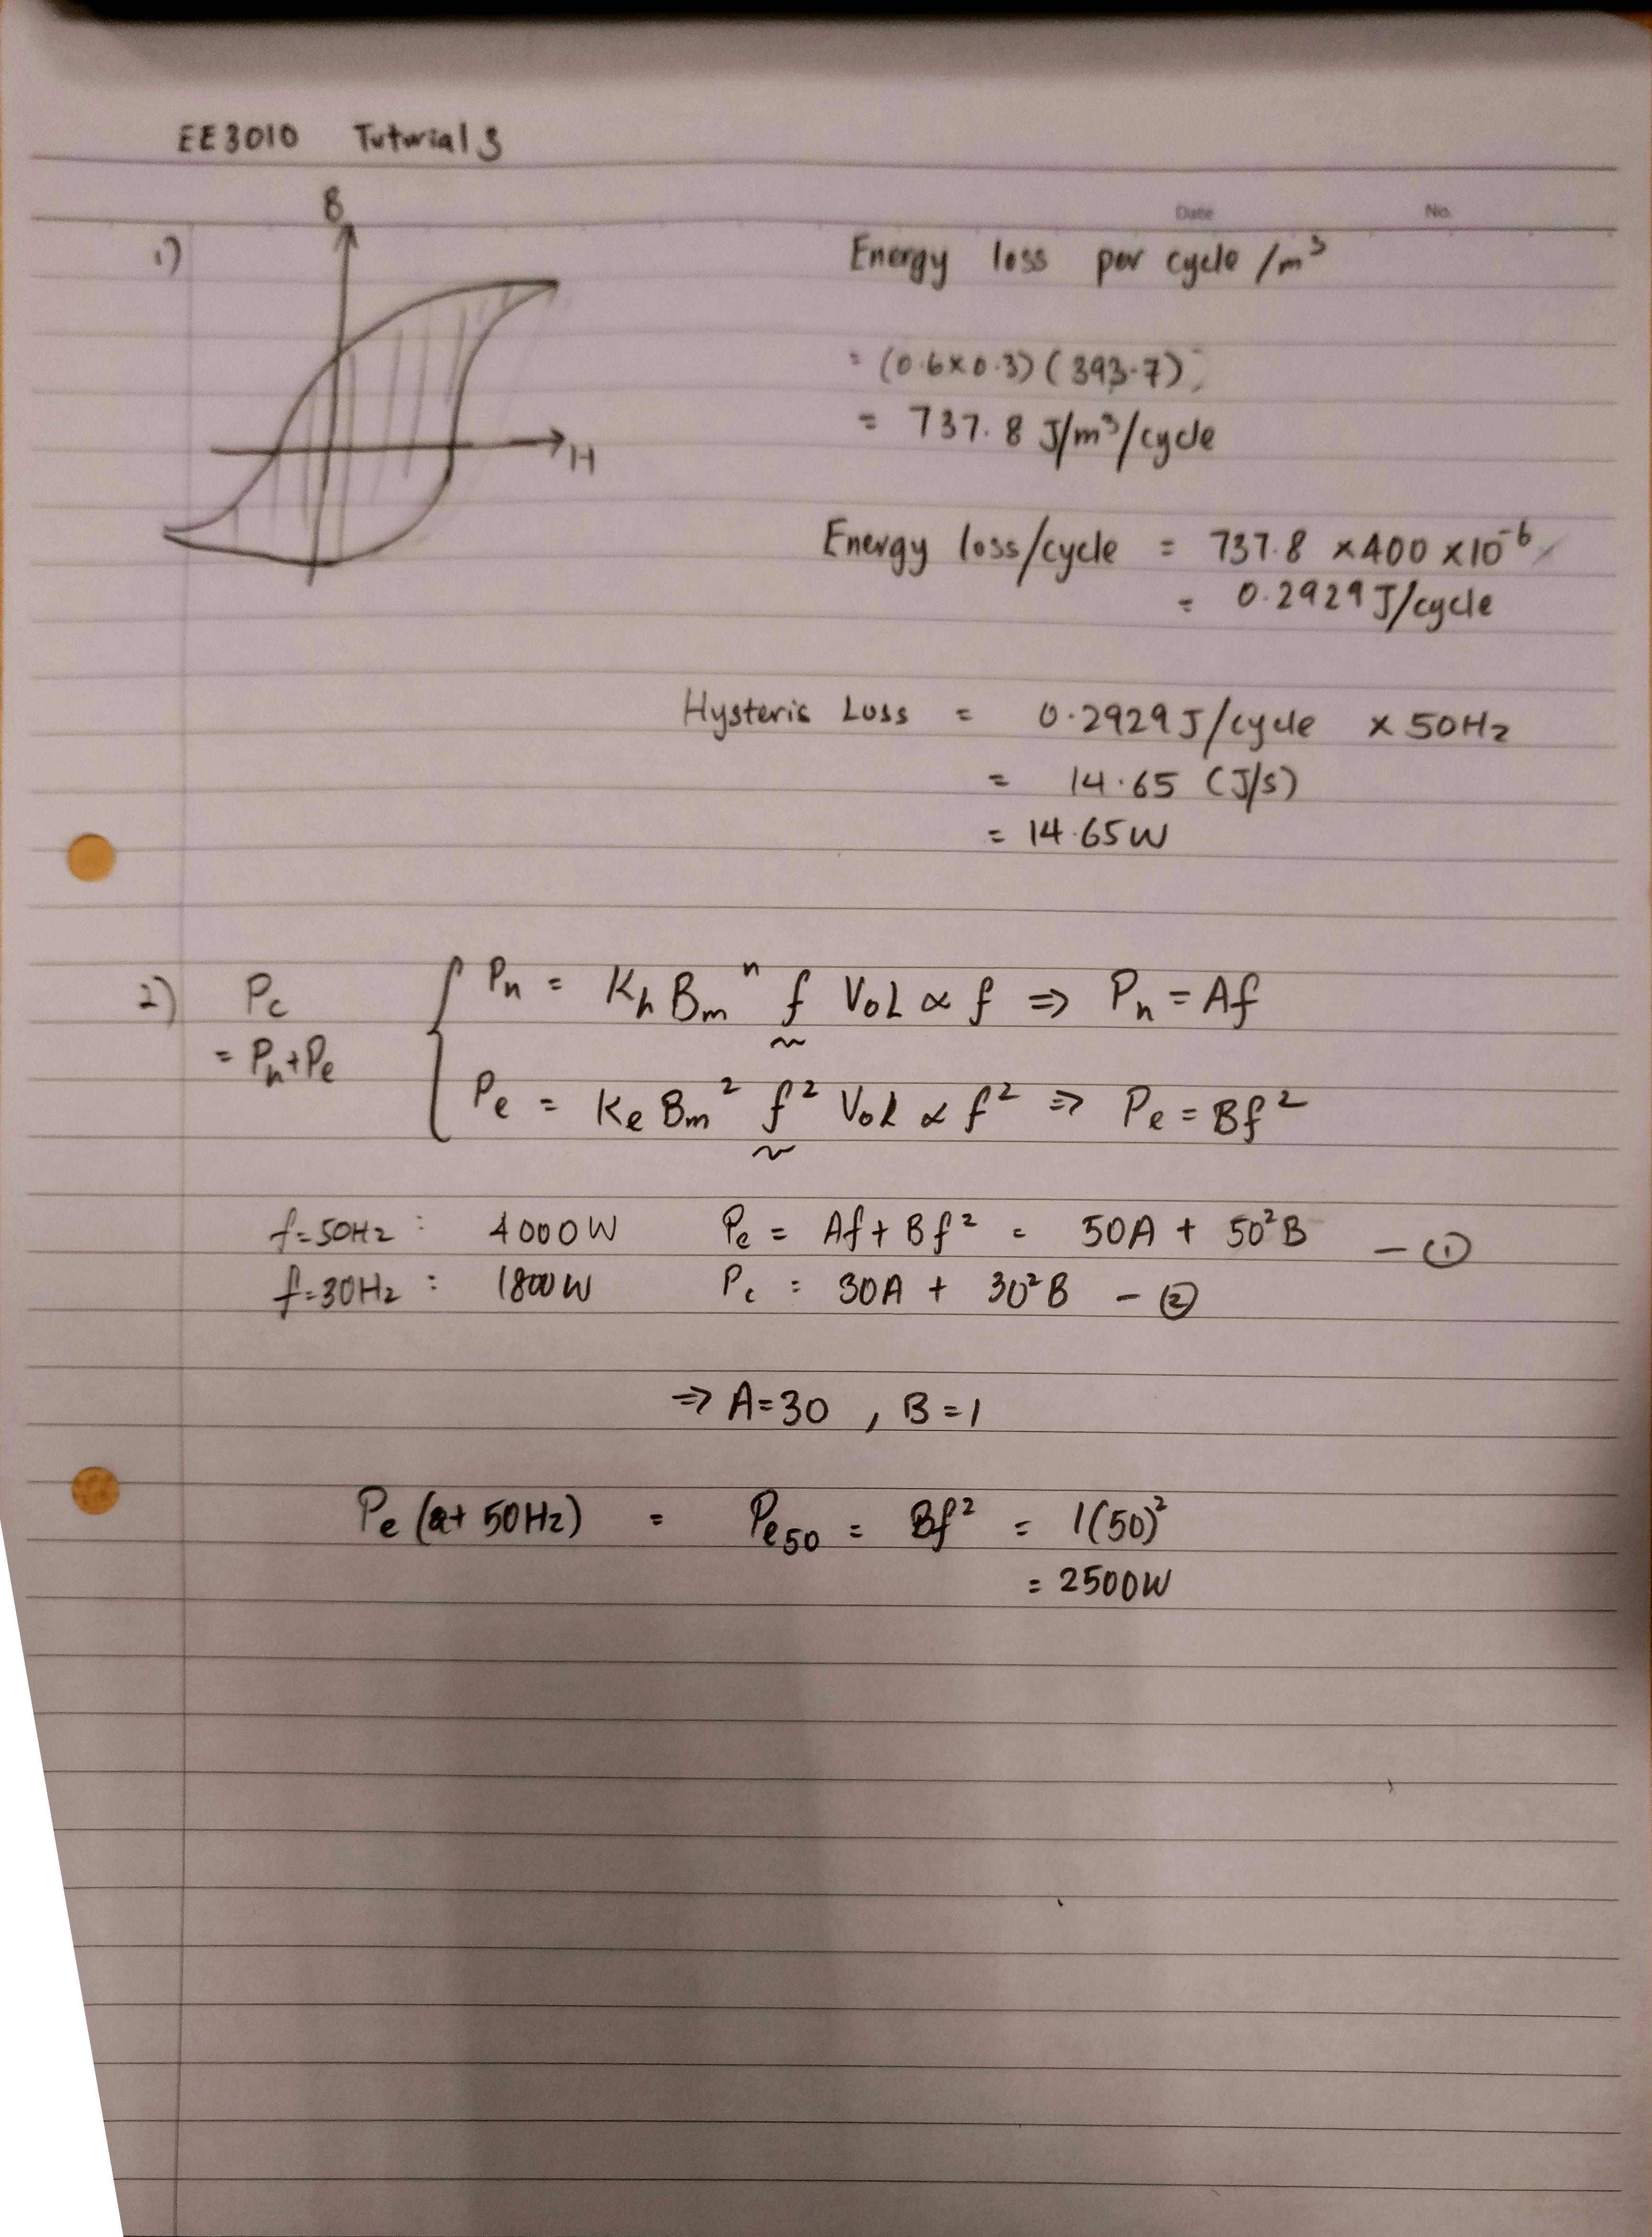 EE3010 Tutorial 3
Date No.
1) B
H
Energy loss per cycle /m³
= (0.6×0.3)(393.7)
= 737.8 J/m³/cycle
Energy loss/cycle = 737.8 ×400 ×10⁻⁶
= 0.2929 J/cycle
Hysteris Loss = 0.2929 J/cycle × 50Hz
= 14.65 (J/s)
= 14.65W
2) Pc
= Ph+Pe
Ph = Kh Bm^n f Vol ∝ f ⇒ Ph = Af
Pe = Ke Bm² f² Vol ∝ f² ⇒ Pe = Bf²
f=50Hz : 4000W Pc = Af + Bf² = 50A + 50²B — ①
f=30Hz : 1800W Pc = 30A + 30²B — ②
⇒ A=30 , B=1
Pe (at 50Hz) = Pe50 = Bf² = 1(50)²
= 2500W